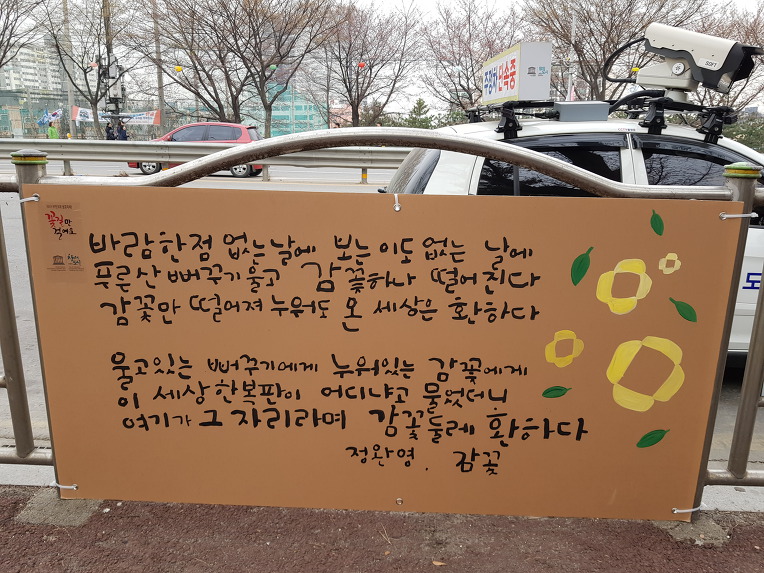 주정차 단속중
꽃길만
걸어요
바람한점 없는날에 보는이도 없는 날에
푸른산 뻐꾸기울고 감꽃하나 떨어진다
감꽃만 떨어져누워도 온 세상은 환하다
울고있는 뻐꾸기에게 누워있는 감꽃에게
이 세상한복판이 어디냐고 물었더니
여기가 그자리라며 감꽃둘레 환하다
정완영. 감꽃
도